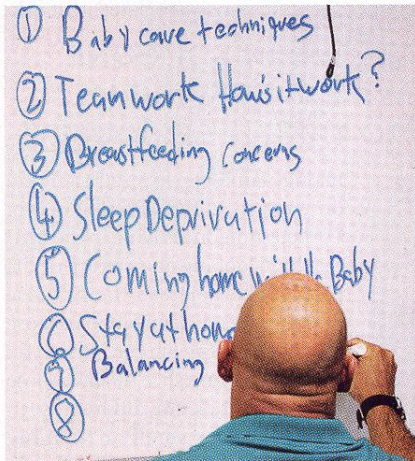 ① Baby care techniques
② Teamwork How's it work?
③ Breastfeeding Concerns
④ Sleep Deprivation
⑤ Coming home with Baby
⑥ Stay at hom
⑦ Balancing
⑧